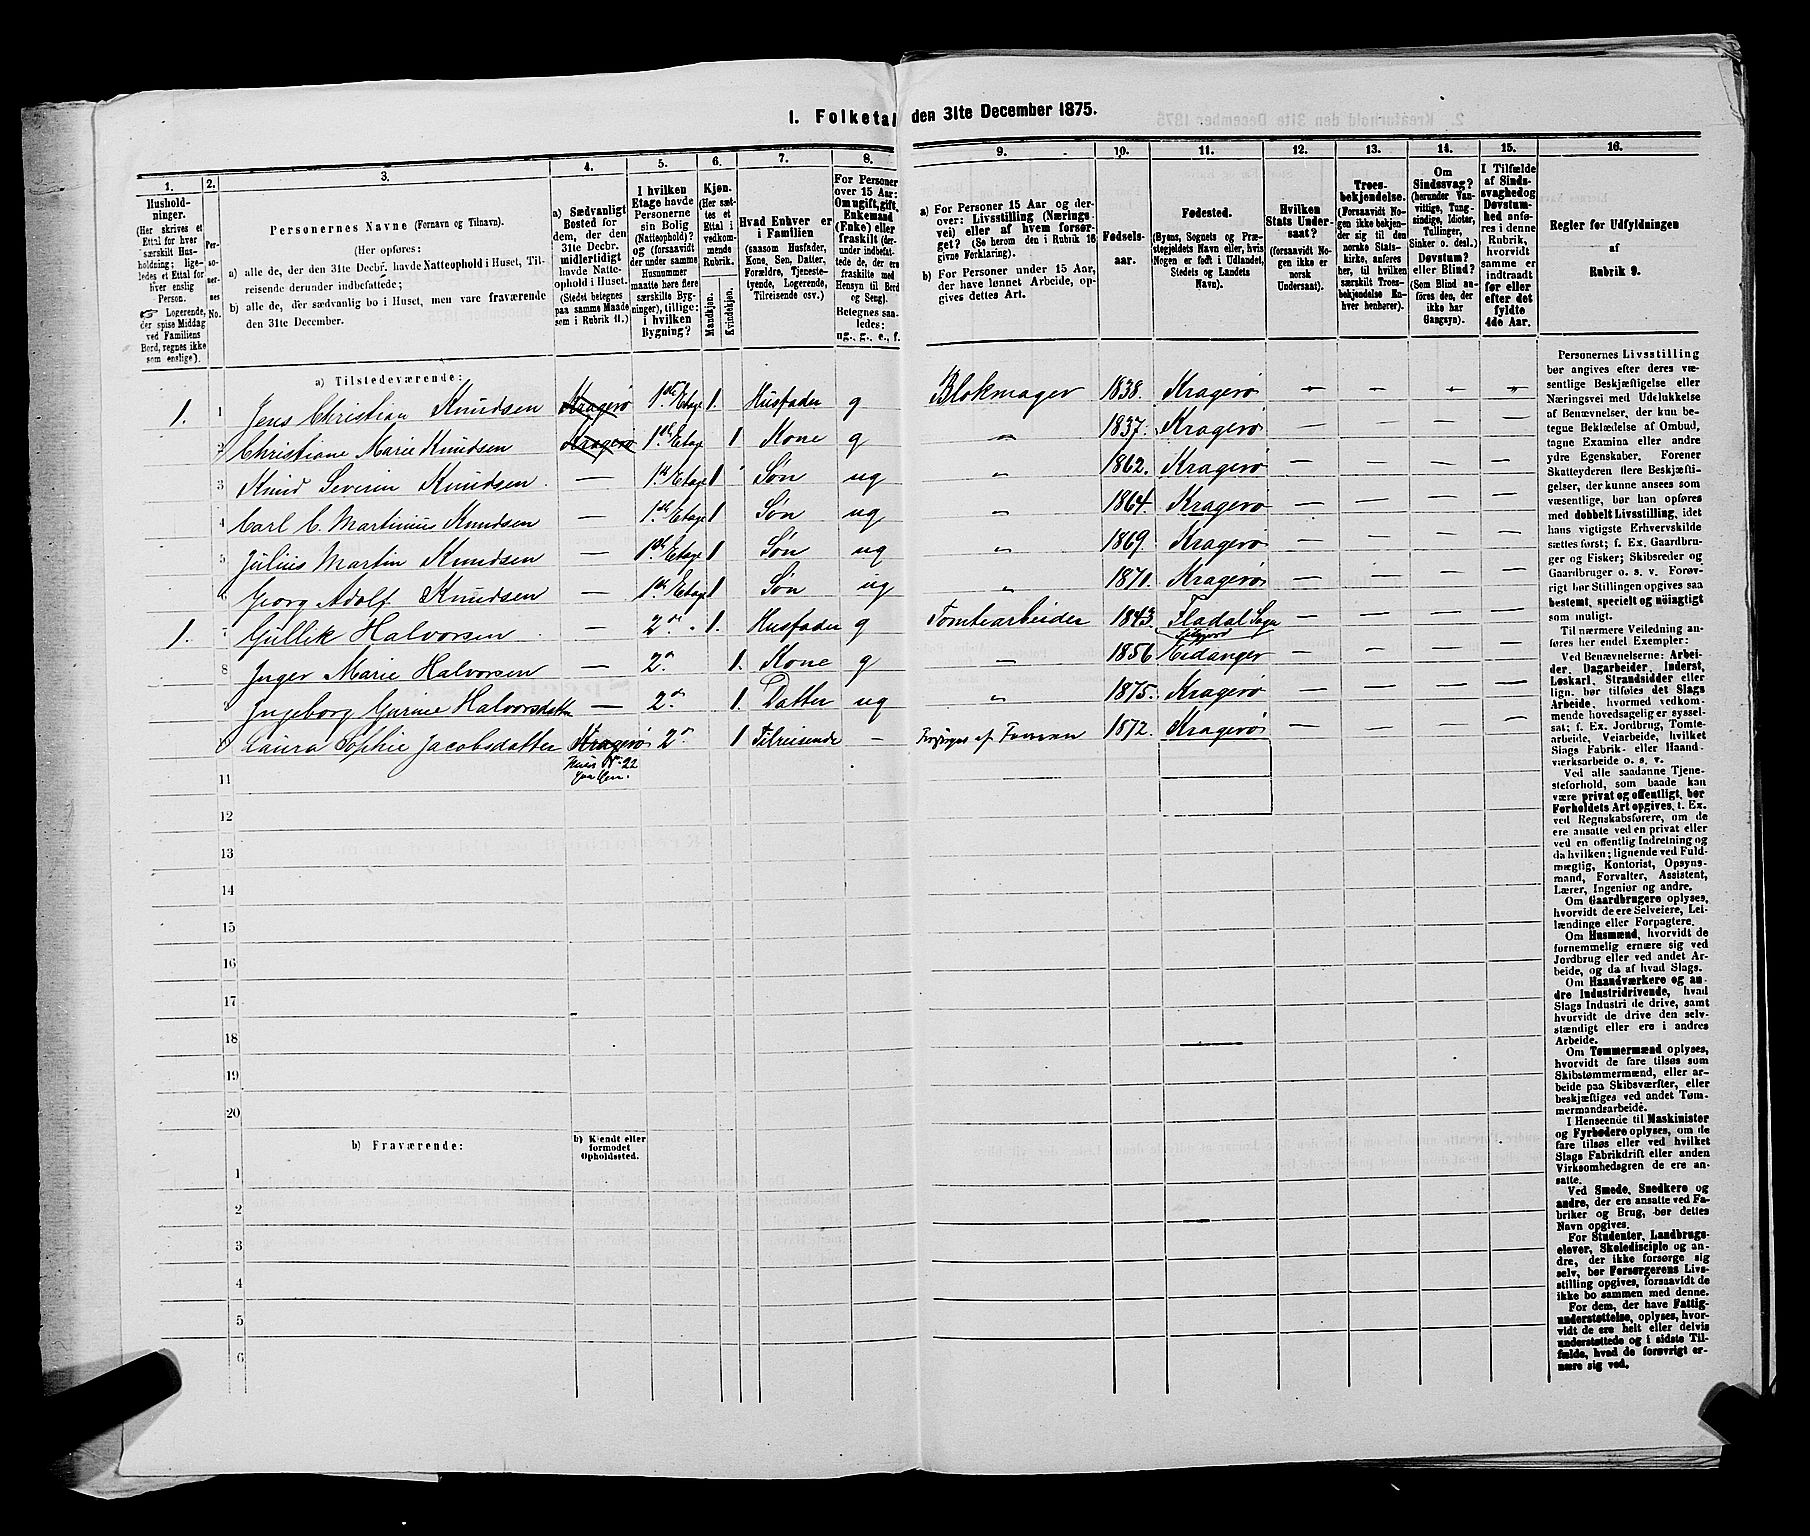 I. Folketal den 31te December 1875.
1. 2. 3. 4. 5. 6. 7. 8. 9. 10. 11. 12. 13. 14. 15. 16.
Hushold-
ninger.
(Her skrives et
Ettal for hver
særskilt Hus-
holdning; lige-
ledes et Ettal for
hver enslig
Person.
☞ Logerende,
der spise Middag
ved Familiens
Bord, regnes ikke
som enslige).
Per-
so-
ner-
nes
No.
Personernes Navne (Fornavn og Tilnavn).
(Her opføres:
a) alle de, der den 31te Decbr. havde Natteophold i Huset, Til-
reisende derunder indbefattede;
b) alle de, der sædvanlig bo i Huset, men vare fraværende
den 31te December.
a) Sædvanligt
Bosted for
dem, der den
31te Decbr.
midlertidigt
havde Natte-
ophold i Huset.
(Stedet betegnes
paa samme Maade
som i Rubrik 11.)
I hvilken
Etage havde
Personerne
sin Bolig
(Natteophold)?
og (forsaavidt
der under samme
Husnummer
maatte høre flere
særskilte Byg-
ninger), tillige:
i hvilken
Bygning?
Kjøn.
(Her sæt-
tes et
Ettal i
vedkom-
mende
Rubrik.
Mandkjøn.
Kvindekjøn.
Hvad Enhver er
i Familien
(saasom Husfader,
Kone, Søn, Datter,
Forældre, Tjeneste-
tyende, Logerende,
Tilreisende osv.)
For Personer
over 15 Aar:
Om ugift, gift,
Enkemand
(Enke) eller
fraskilt (der-
under indbefat-
tede de, der ere
fraskilte med
Hensyn til Bord
og Seng).
Betegnes saa-
ledes:
ug., g., e., f.
a) For Personer 15 Aar og der-
over: Livsstilling (Nærings-
vei) eller af hvem forsør-
get? (Se herom den i Rubrik 16
givne Forklaring).
b) For Personer under 15 Aar,
der have lønnet Arbeide, op-
gives dettes Art.
Fødsels-
aar.
Fødested.
(Byens, Sognets og Præ-
stegjeldets Navn eller, hvis
Nogen er født i Udlandet,
Stedets og Landets
Navn).
Hvilken
Stats Under-
saat?
(forsaavidt No-
gen ikke er
norsk
Undersaat).
Troes-
bekjendelse.
(Forsaavidt No-
gen ikke bekjen-
der sig til den
norske Stats-
kirke, anføres
her, til hvilken
særskilt Troes-
bekjendelse En-
hver henhører).
Om
Sindssvag?
(herunder Van-
vittige, Tung-
sindige, Idioter,
Tullinger,
Sinker o. desl.)
Døvstum?
eller Blind?
(Som Blind an-
føres den, der
ikke har
Gangsyn).
I Tilfælde
af Sinds-
svaghed og
Døvstum-
hed anfø-
res i denne
Rubrik,
hvorvidt
samme er
indtraadt
før eller
efter det
fyldte
4de Aar.
Regler for Udfyldningen
af
Rubrik 9.
a) Tilstedeværende:
1. 1 Jens Christian Knudsen Kragerø 1ste Etage 1. Husfader g Blokmager 1838. Kragerø
2 Christiane Marie Knudsen Kragerø 1ste Etage 1 Kone g " 1837. Kragerø — — — —
3 Knud Severin Knudsen — 1ste Etage 1 Søn ug " 1862. Kragerø — — — —
4 Carl C. Martinius Knudsen — 1ste Etage 1 Søn ug " 1864. Kragerø — — — —
5 Julius Martin Knudsen — 1ste Etage 1 Søn ug " 1869. Kragerø — — — —
6 Georg Adolf Knudsen — 1ste Etage 1 Søn ug " 1870. Kragerø — — — —
1. 7 Gullik Halvorsen — 2den 1. Husfader g Tomtearbeider 1843. Fladal Sogn
8 Inger Marie Halvorsen — 2den 1. Kone g " 1856 Eidanger — — — —
9 Ingeborg Gurine Halvorsdatter — 2den 1. Datter ug " 1875. Kragerø — — — —
Laura Sophie Jacobsdatter Kragerø 2den 1 Tilreisende — Forsørges af 1872. Kragerø — — — —
Huus No 22
11
12
13
14
15
16
17
18
19
20
b) Fraværende:
b) Kjendt eller
formodet
Opholdssted.
1
2
3
4
5
6
Personernes Livsstilling
bør angives efter deres væ-
sentlige Beskjæftigelse eller
Næringsvei med Udelukkelse
af Benævnelser, der kun be-
tegne Beklædelse af Ombud,
tagne Examina eller andre
ydre Egenskaber. Forener
Skatteyderen flere Beskjæfti-
gelser, der kunne ansees som
væsentlige, bør han opføres
med dobbelt Livsstilling, idet
hans vigtigste Erhvervskilde
sættes først; f. Ex. Gaardbru-
ger og Fisker; Skibsreder og
Gaardbruger o. s. v. Forøv-
rigt bør Stillingen opgives saa
bestemt, specielt og nöiagtigt
som muligt.
Til nærmere Veiledning an-
føres her endel Exempler:
Ved Benævnelserne: Arbei-
der, Dagarbeider, Inderst,
Løskarl, Strandsidder eller
lign. bør tilføies det Slags
Arbeide, hvormed vedkom-
mende hovedsagelig er syssel-
sat; f. Ex. Jordbrug, Tomte-
arbeide, Veiarbeide, hvilket
Slags Fabrik- eller Haand-
værksarbeide o. s. v.
Ved alle saadanne Tjene-
steforhold, som baade kan
være privat og offentligt, bør
Forholdets Art opgives, t. Ex.
ved Regnskabsførere, om de
ere ansatte ved en privat eller
ved en offentlig Indretning og
da hvilken; lignende ved Fuld-
mægtig, Kontorist, Opsyns-
mand, Forvalter, Assistent,
Lærer, Ingeniør og andre.
Om Gaardbrugere oplyses,
hvorvidt de ere Selveiere, Lei-
lændinge eller Forpagtere.
Om Husmænd, hvorvidt de
fornemmelig ernære sig ved
Jordbrug eller ved andet Ar-
beide, og da af hvad Slags.
Om Haandværkere og an-
dre Industridrivende, hvad
Slags Industri de drive, samt
hvorvidt de drive den selv-
stændigt eller ere i andres
Arbeide.
Om Tømmermænd oplyses,
hvorvidt de fare tilsøs som
Skibstømmermænd, eller ar-
beide paa Skibsværfter, eller
beskjæftiges ved andet Tøm-
mermandsarbeide.
I Henseende til Maskinister
og Fyrbødere oplyses, om de
fare tilsøs eller ved hvilket
Slags Fabrikdrift eller anden
Virksomhedsgren de ere an-
satte.
Ved Smede, Snedkere og
andre, der ere ansatte ved Fa-
briker og Brug, bør dettes
Navn opgives.
For Studenter, Landbrugs-
elever, Skoledisciple og an-
dre, der ikke forsørge sig
selv, bør Forsørgerens Livs-
stilling opgives, forsaavidt de
ikke bo sammen med denne.
For dem, der have Fattig-
understøttelse, oplyses, hvor-
vidt de ere helt eller delvis
understøttede og i sidste Til-
fælde, hvad de forøvrigt er-
nære sig ved.